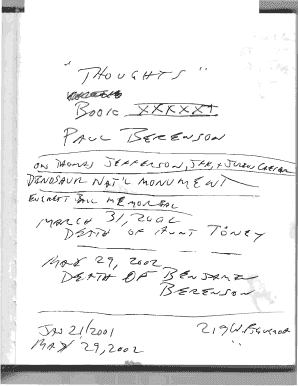 "THOUGHTS"
BOOK XXXXX
PAUL BERENSON
ON THOMAS JEFFERSON, JFK, + JULIUS CAESAR
DINOSAUR NAT'L MONUMENT
EVERETT MEMORIAL
MARCH 31, 2002
DEATH OF AUNT TONEY
MAY 29, 2002
DEATH OF BENJAMIN
BERENSON
JAN 21/2001
219 W.
MAY 29, 2002